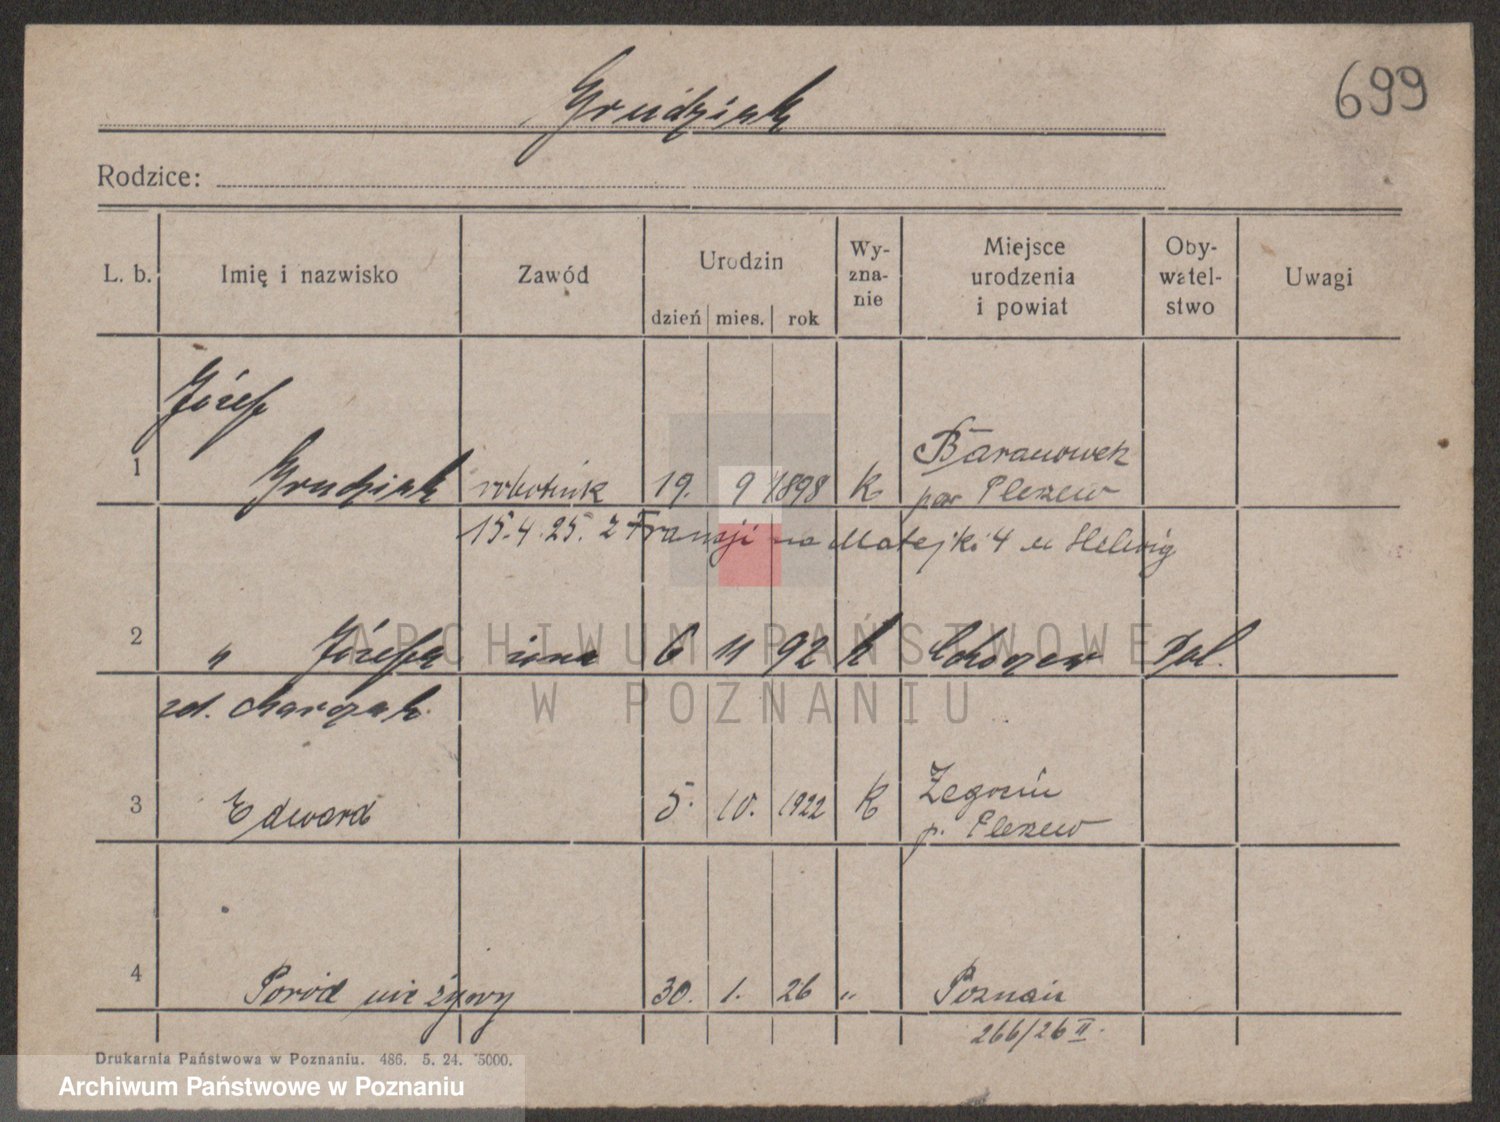 699
Grudziak
Rodzice:
L. b. Imię i nazwisko Zawód Urodzin dzień mies. rok Wy-zna-nie Miejsce urodzenia i powiat Oby-watel-stwo Uwagi
Józef
1 Grudziak robotnik 19. 9 1898 k Baranówek
pow Pleszew
15.4.25. z Francji na Matejki 4 u Helwig
2 " Józefa żona 6 11 92 k Pol.
zd.
3 Edward 5. 10. 1922 k
p. Pleszew
4 Poród nieżywy 30. 1. 26 " Poznań
266/26 II.
Drukarnia Państwowa w Poznaniu. 486. 5. 24. 5000.
ARCHIWUM PAŃSTWOWE
W POZNANIU
Archiwum Państwowe w Poznaniu